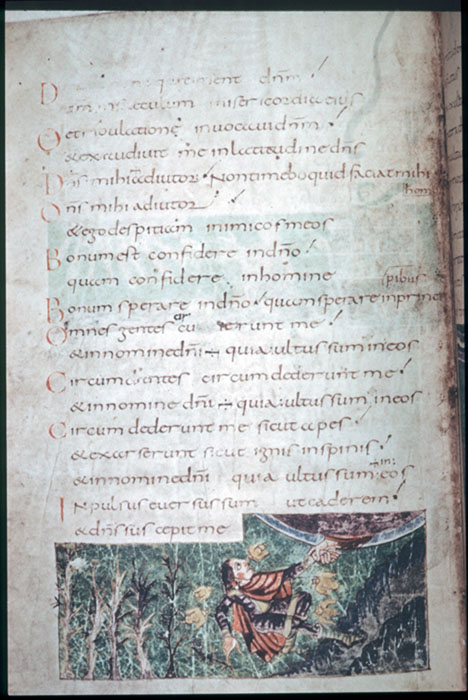 D qui timent dnm
qm in saeculum misericordia eius
De tribulatione invocavi dnm
& exaudivit me in latitudine dns
Dns mihi adiutor Non timebo quid faciat mihi
homo
Dns mihi adiutor
& ego despiciam inimicos meos
Bonum est confidere in dno
quam confidere in homine
Bonum sperare in dno quam sperare in prin
cipibus
Omnes gentes circuierunt me
& in nomine dni ÷ quia ultus sum in eos
Circumdantes circumdederunt me
& in nomine dni ÷ quia ultus sum in eos
Circumdederunt me sicut apes
& exarserunt sicut ignis in spinis
& in nomine dni quia ultus sum in eos
Inpulsus eversus sum ut caderem
& dns suscepit me